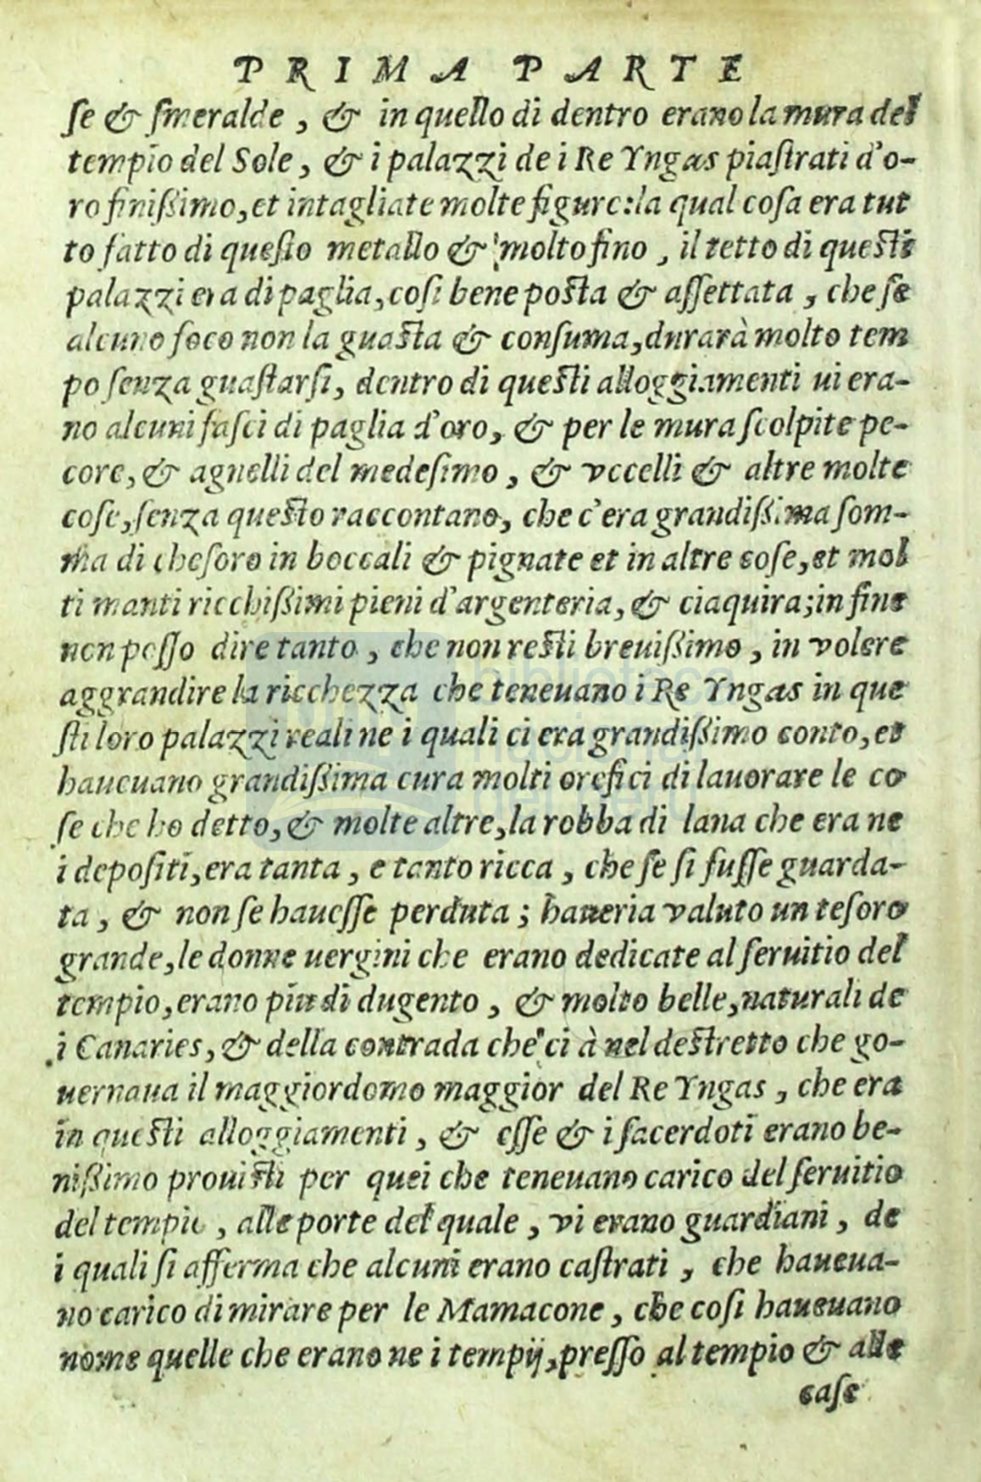 PRIMA PARTE
ſe & ſmeralde, & in quello di dentro erano la mura del
tempio del Sole, & i palazzi de i Re Yngas piaſtrati d'o-
ro finißimo, et intagliate molte figure: la qual coſa era tut
to fatto di queſto metallo & molto fino, il tetto di queſti
palazzi era di paglia, coſi bene poſta & aſſettata, che ſe
alcuno foco non la guaſta & conſuma, durarà molto tem
po ſenza guaſtarſi, dentro di queſti alloggiamenti ui era-
no alcuni faſci di paglia d'oro, & per le mura ſcolpite pe-
core, & agnelli del medeſimo, & vccelli & altre molte
coſe, ſenza queſto raccontano, che c'era grandißima ſom-
ma di theſoro in boccali & pignate et in altre coſe, et mol
ti manti ricchißimi pieni d'argenteria, & ciaquira; in fine
non poſſo dire tanto, che non reſti breuißimo, in volere
aggrandire la ricchezza che teneuano i Re Yngas in que
ſti loro palazzi reali ne i quali ci era grandißimo conto, et
haueuano grandißima cura molti orefici di lauorare le co
ſe che ho detto, & molte altre, la robba di lana che era ne
i depoſiti, era tanta, e tanto ricca, che ſe ſi fuſſe guarda-
ta, & non ſe haueſſe perduta; haueria valuto un teſoro
grande, le donne uergini che erano dedicate al ſeruitio del
tempio, erano piu di dugento, & molto belle, naturali de
i Canaries, & della contrada che ci à nel deſtretto che go-
uernaua il maggiordomo maggior del Re Yngas, che era
in queſti alloggiamenti, & eſſe & i ſacerdoti erano be-
nißimo prouiſti per quei che teneuano carico del ſeruitio
del tempio, alle porte del quale, vi erano guardiani, de
i quali ſi afferma che alcuni erano caſtrati, che haueua-
no carico di mirare per le Mamacone, che coſi haueuano
nome quelle che erano ne i tempij, preſſo al tempio & alle
caſe